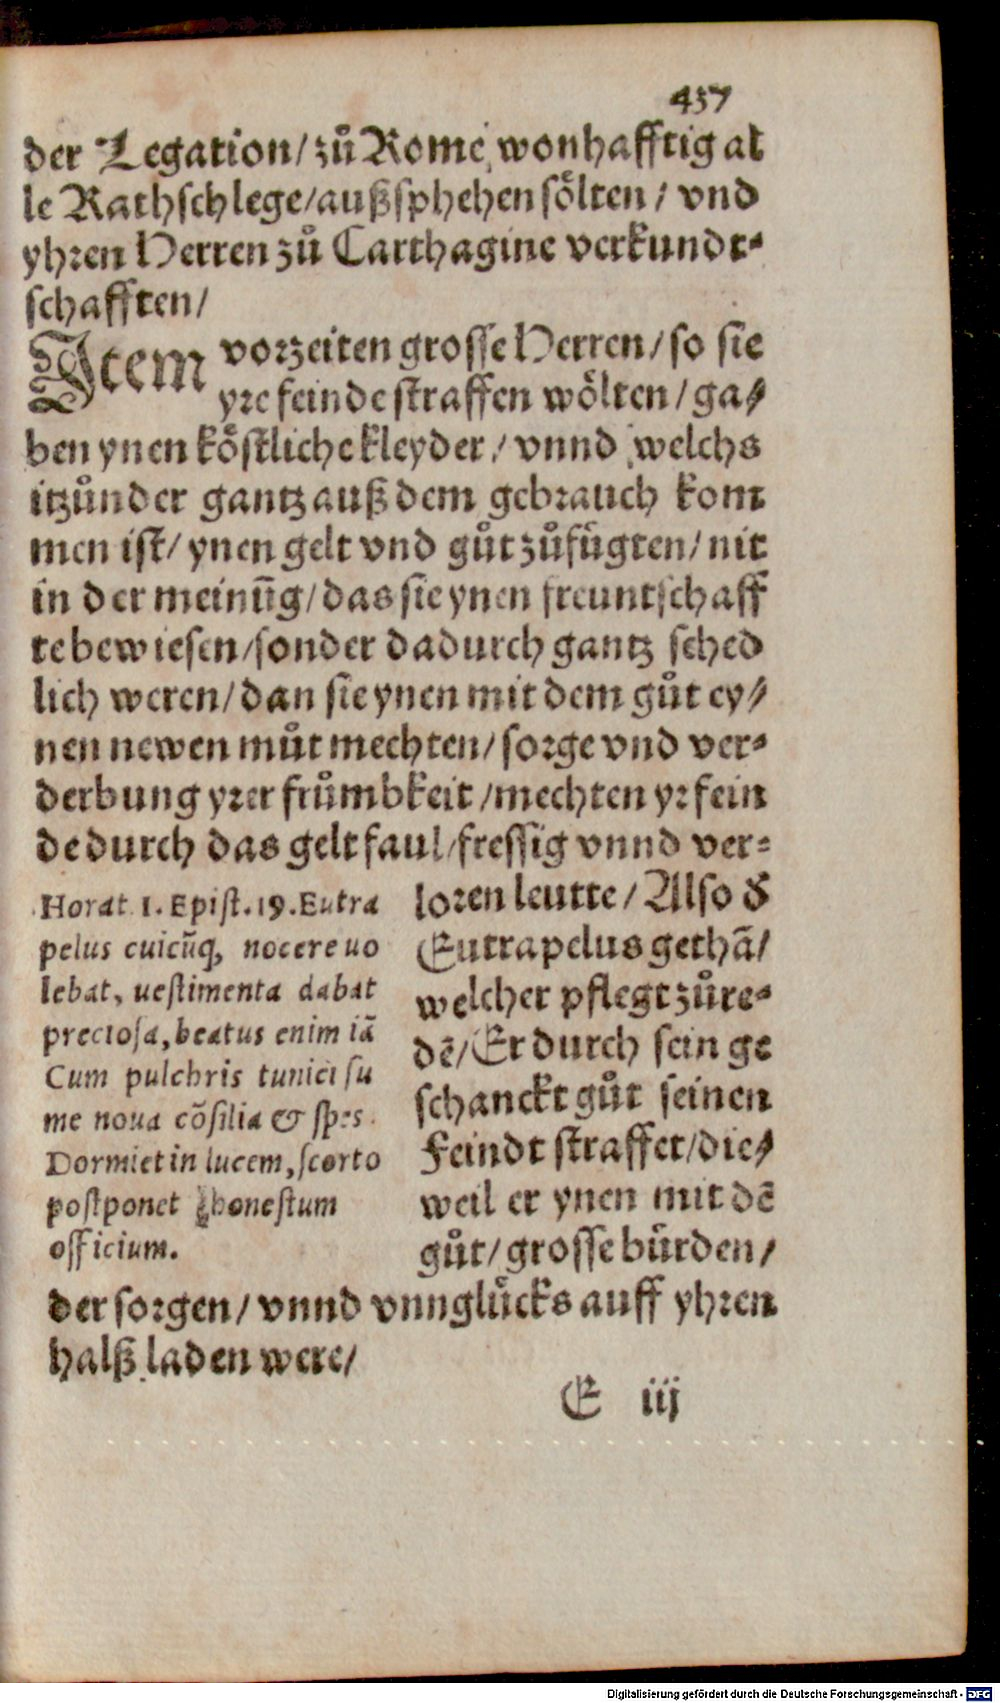 437
der Legation/ zů Rome wonhafftig al
le Rathschlege/außsphehen sölten/ vnd
yhren Herren zů Carthagine verkundt⸗
schafften/
Item vorzeiten grosse Herren/ so sie
yre feinde straffen wölten/ ga⸗
ben ynen köstliche kleyder/ vnnd welchs
itzůnder gantz auß dem gebrauch kom
men ist/ ynen gelt vnd gůt zůfügten/ nit
in der meinūg/ das sie ynen freuntschaff
te bewiesen/sonder dadurch gantz sched
lich weren/ dan sie ynen mit dem gůt ey⸗
nen newen můt mechten/ sorge vnd ver⸗
derbung yrer frůmbkeit/mechten yr fein
de durch das gelt faul/fressig vnnd ver⸗
loren leutte/ Also d̕
Eutrapelus gethā/
welcher pflegt zůre⸗
dē/ Er durch sein ge
schanckt gůt seinen
Feindt straffet/die⸗
weil er ynen mit dē
gůt/ grosse bürden/
der sorgen/ vnnd vnnglücks auff yhren
halß laden were/
Horat. 1. Epist. 19. Eutra
pelus cuicūq, nocere uo
lebat, uestimenta dabat
preciosa, beatus enim iā
Cum pulchris tunici su
me noua cōsilia & spes.
Dormiet in lucem, scorto
postponet honestum
officium.
E iij
Digitalisierung gefördert durch die Deutsche Forschungsgemeinschaft - DFG